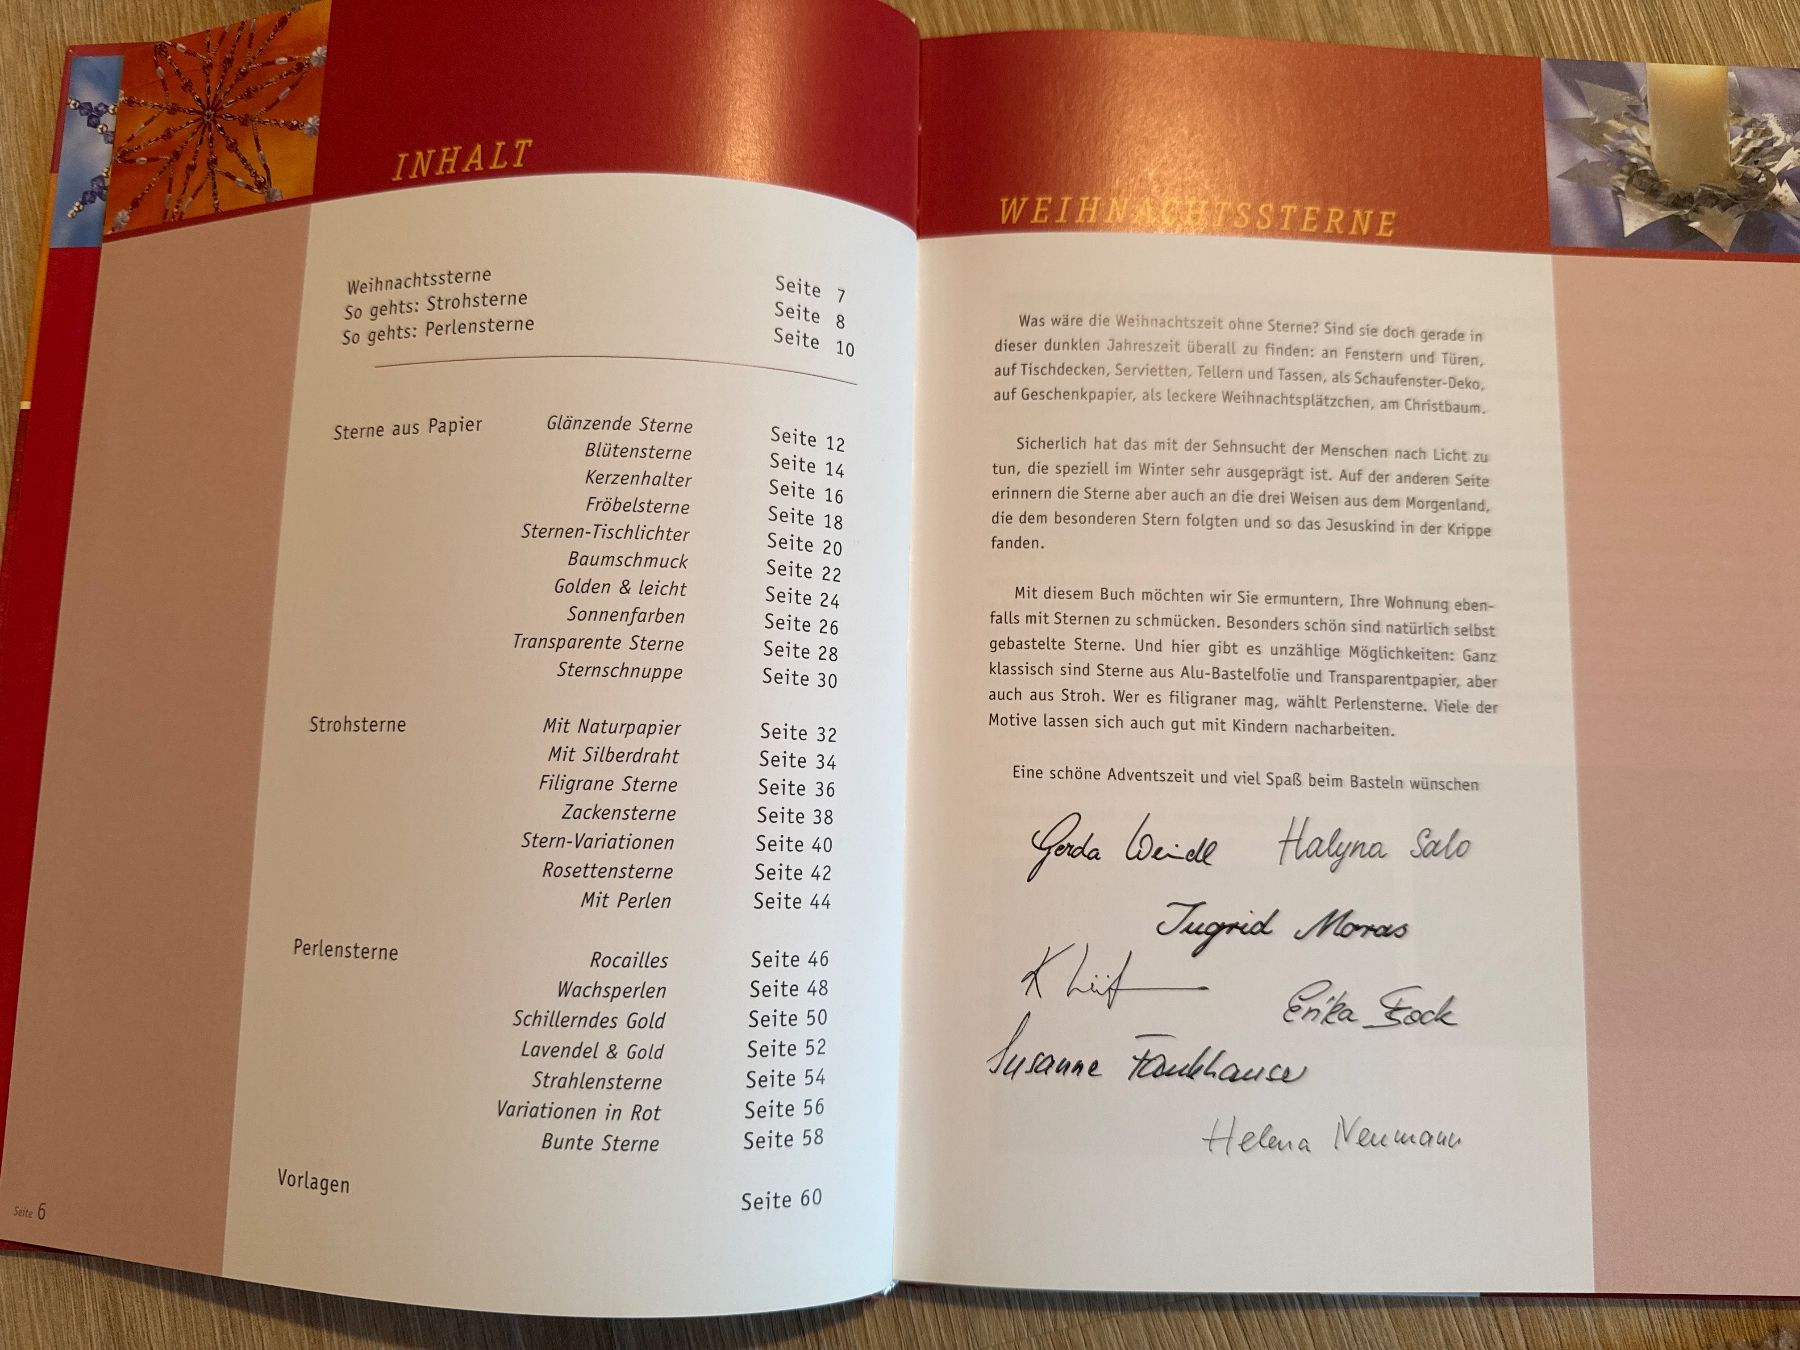 INHALT
Weihnachtssterne Seite 7
So gehts: Strohsterne Seite 8
So gehts: Perlensterne Seite 10
Sterne aus Papier Glänzende Sterne Seite 12
Blütensterne Seite 14
Kerzenhalter Seite 16
Fröbelsterne Seite 18
Sternen-Tischlichter Seite 20
Baumschmuck Seite 22
Golden & leicht Seite 24
Sonnenfarben Seite 26
Transparente Sterne Seite 28
Sternschnuppe Seite 30
Strohsterne Mit Naturpapier Seite 32
Mit Silberdraht Seite 34
Filigrane Sterne Seite 36
Zackensterne Seite 38
Stern-Variationen Seite 40
Rosettensterne Seite 42
Mit Perlen Seite 44
Perlensterne Rocailles Seite 46
Wachsperlen Seite 48
Schillerndes Gold Seite 50
Lavendel & Gold Seite 52
Strahlensterne Seite 54
Variationen in Rot Seite 56
Bunte Sterne Seite 58
Vorlagen Seite 60
Seite 6
WEIHNACHTSSTERNE
Was wäre die Weihnachtszeit ohne Sterne? Sind sie doch gerade in
dieser dunklen Jahreszeit überall zu finden: an Fenstern und Türen,
auf Tischdecken, Servietten, Tellern und Tassen, als Schaufenster-Deko,
auf Geschenkpapier, als leckere Weihnachtsplätzchen, am Christbaum.
Sicherlich hat das mit der Sehnsucht der Menschen nach Licht zu
tun, die speziell im Winter sehr ausgeprägt ist. Auf der anderen Seite
erinnern die Sterne aber auch an die drei Weisen aus dem Morgenland,
die dem besonderen Stern folgten und so das Jesuskind in der Krippe
fanden.
Mit diesem Buch möchten wir Sie ermuntern, Ihre Wohnung eben-
falls mit Sternen zu schmücken. Besonders schön sind natürlich selbst
gebastelte Sterne. Und hier gibt es unzählige Möglichkeiten: Ganz
klassisch sind Sterne aus Alu-Bastelfolie und Transparentpapier, aber
auch aus Stroh. Wer es filigraner mag, wählt Perlensterne. Viele der
Motive lassen sich auch gut mit Kindern nacharbeiten.
Eine schöne Adventszeit und viel Spaß beim Basteln wünschen
Gerda Weindl Halyna Salo
Ingrid Moras
K
Erika Bock
Susanne Fankhauser
Helena Neumann